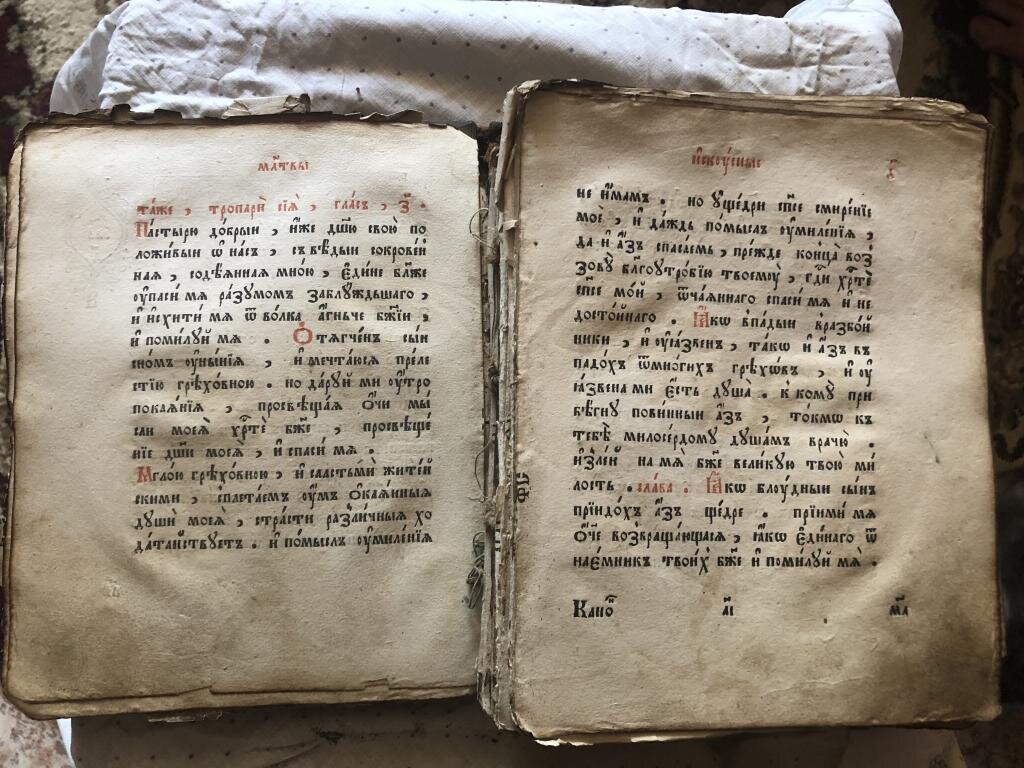 мл҃твы
та́же , тропарѝ сїѧ̀ , гла́съ , з҃ .
Па́стырю до́брыи , и҆́же дш҃ꙋ свою̀ по
ложи́выи ѡ҆ на́съ , съвѣ́дыи сокрове́н
наѧ , содѣ́ѧннаѧ мно́ю , є҆ди́не бл҃же
ᲂу҆пасѝ мѧ ра́зꙋмомъ заблꙋ́ждьшаго ,
и҆ и҆схитѝ мѧ ѿ во́лка а҆́гньче бж҃їи ,
и҆ поми́лꙋй мѧ . Ѻ҆тѧгче́н сы́и
сно́мъ ᲂу҆ны́нїѧ , и҆ мечта́юсѧ пре́ле
стїю грѣхо́вною . но да́рꙋй ми ᲂу҆́тро
покаѧ́нїѧ , просвѣща́ѧ ѻ҆́чи мы́
сли моеѧ̀ хрⷭ҇тѐ бж҃е , просвѣще
нїе дш҃и моеѧ̀ , и҆ спаси́ мѧ .
Мгло́ю грѣхо́вною , и҆ сластьмѝ жите́й
скими , сплета́ем ᲂу҆́мъ ѻ҆каѧ́нныѧ
дꙋшѝ моеѧ̀ , стра́сти разли́чныѧ хо
да́таиствꙋетъ . и҆ по́мыслъ ᲂу҆миле́нїѧ
и҆скꙋ́сные
не и҆́мамъ . но ᲂу҆ще́дри сп҃се смире́нїе
моѐ , и҆ да́ждь по́мыслъ ᲂу҆миле́нїѧ ,
да и҆ а҆́зъ спаса́емь , пре́жде конца̀ воз
зовꙋ̀ бл҃гоꙋтро́бїю твоемꙋ̀ , гдⷭ҇и хрⷭ҇тѐ
сп҃се мо́й , ѿча́ѧннаго спаси́ мѧ и҆ не
досто́йнаго . Ꙗ҆́кѡ впады́и вразбо́й
ники , и҆ ᲂу҆ѧ́звен , та́кѡ и҆ а҆́зъ въ
падо́хъ ѿмно́гихъ грѣхѡ́въ , и҆ ᲂу҆
ѧ́звена ми є҆́сть дꙋша̀ . к комꙋ̀ при
бѣ́гнꙋ пови́нныи а҆́зъ , то́кмѡ къ
тебѣ̀ милосе́рдомꙋ дꙋша́мъ врачю̀ .
и҆зле́й на мѧ̀ бж҃е вели́кꙋю твою̀ ми́
лость . сла́ва . Ꙗ҆́кѡ блꙋ́дныи сы́нъ
прїидо́хъ а҆́зъ ще́дре . прїими́ мѧ
ѻ҆́ч҃е возвраща́ющасѧ , ꙗ҆́кѡ є҆ди́наго ѿ
нае́мникъ твои́хъ бж҃е и҆ поми́лꙋй мѧ̀ .
Кано҇н а҃і м҃а